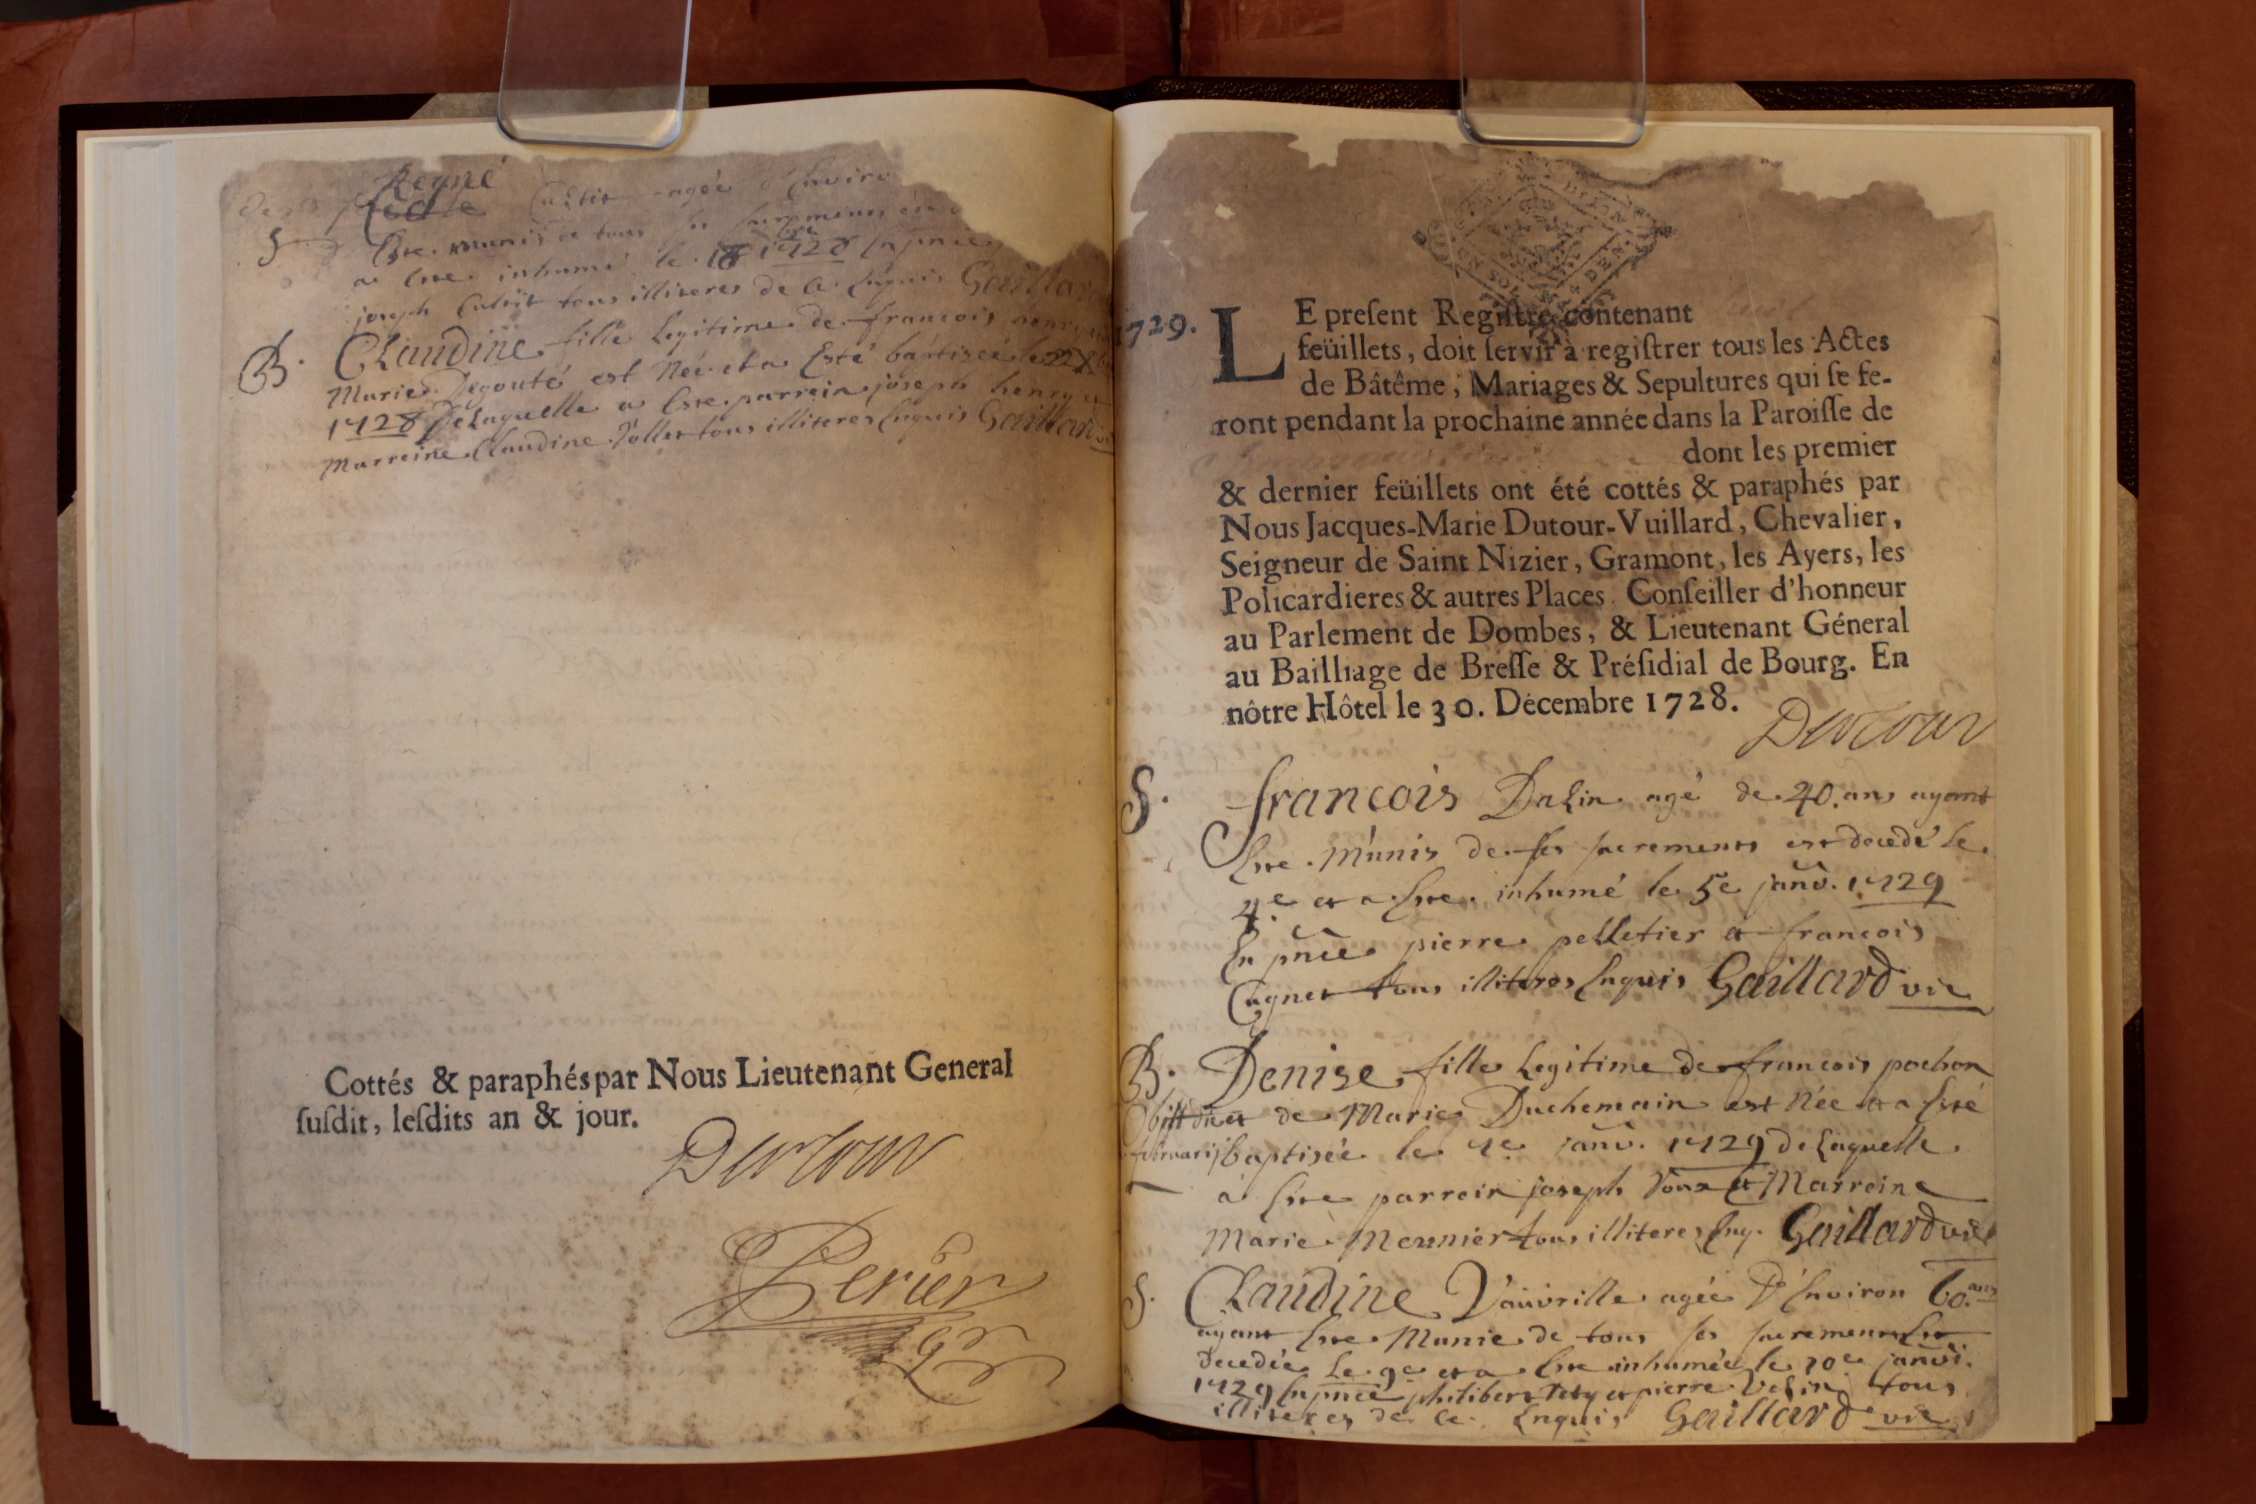 Reyné
agée d'Enviro
Este munis de tous ses sacremens
a este inhumé le 18 1728 En pnce
joseph tous illiteres de ce Enquis Gaillard
B. Claudine fille legitime de francois
Marie Degouté est Née et a Esté baptisée le 22 X
1728 de Laquelle a Este parrein joseph henry
Marreine Claudine tous illiteres Enquis Gaillard
Cottés & paraphés par Nous Lieutenant General
susdit, lesdits an & jour.
Dutour
Perier
1729.
LE present Registre contenant
feüillets, doit servir à registrer tous les Actes
de Bâtême, Mariages & Sepultures qui se fe-
ront pendant la prochaine année dans la Paroisse de
dont les premier
& dernier feüillets ont été cottés & paraphés par
Nous Jacques-Marie Dutour-Vuillard, Chevalier,
Seigneur de Saint Nizier, Gramont, les Ayers, les
Policardieres & autres Places. Conseiller d'honneur
au Parlement de Dombes, & Lieutenant Géneral
au Bailliage de Bresse & Présidial de Bourg. En
nôtre Hôtel le 30. Décembre 1728.
Dutour
S. francois agé de 40. ans ayant
Este Munis de ses sacremens est decedé le
4e et a Este inhumé le 5e janv. 1729
En pnce pierre pelletier et francois
Cagnet tous illiteres Enquis Gaillard vic
B. Denise fille Legitime de francois pochon
et de Marie Duchemain est Née et a Esté
februarij baptisée le janv. 1729 de Laquelle
a Este parrein joseph et Marreine
Marie Meunier tous illiteres Enq. Gaillard vic
S. Claudine Vauvrille agée d'Environ 60. ans
ayant Este Munie de tous ses sacremens Est
decedée Le 9e et a Este inhumée le 10e janvi.
1729 En pnce philibert et pierre tous
illiteres de ce Enquis Gaillard vic